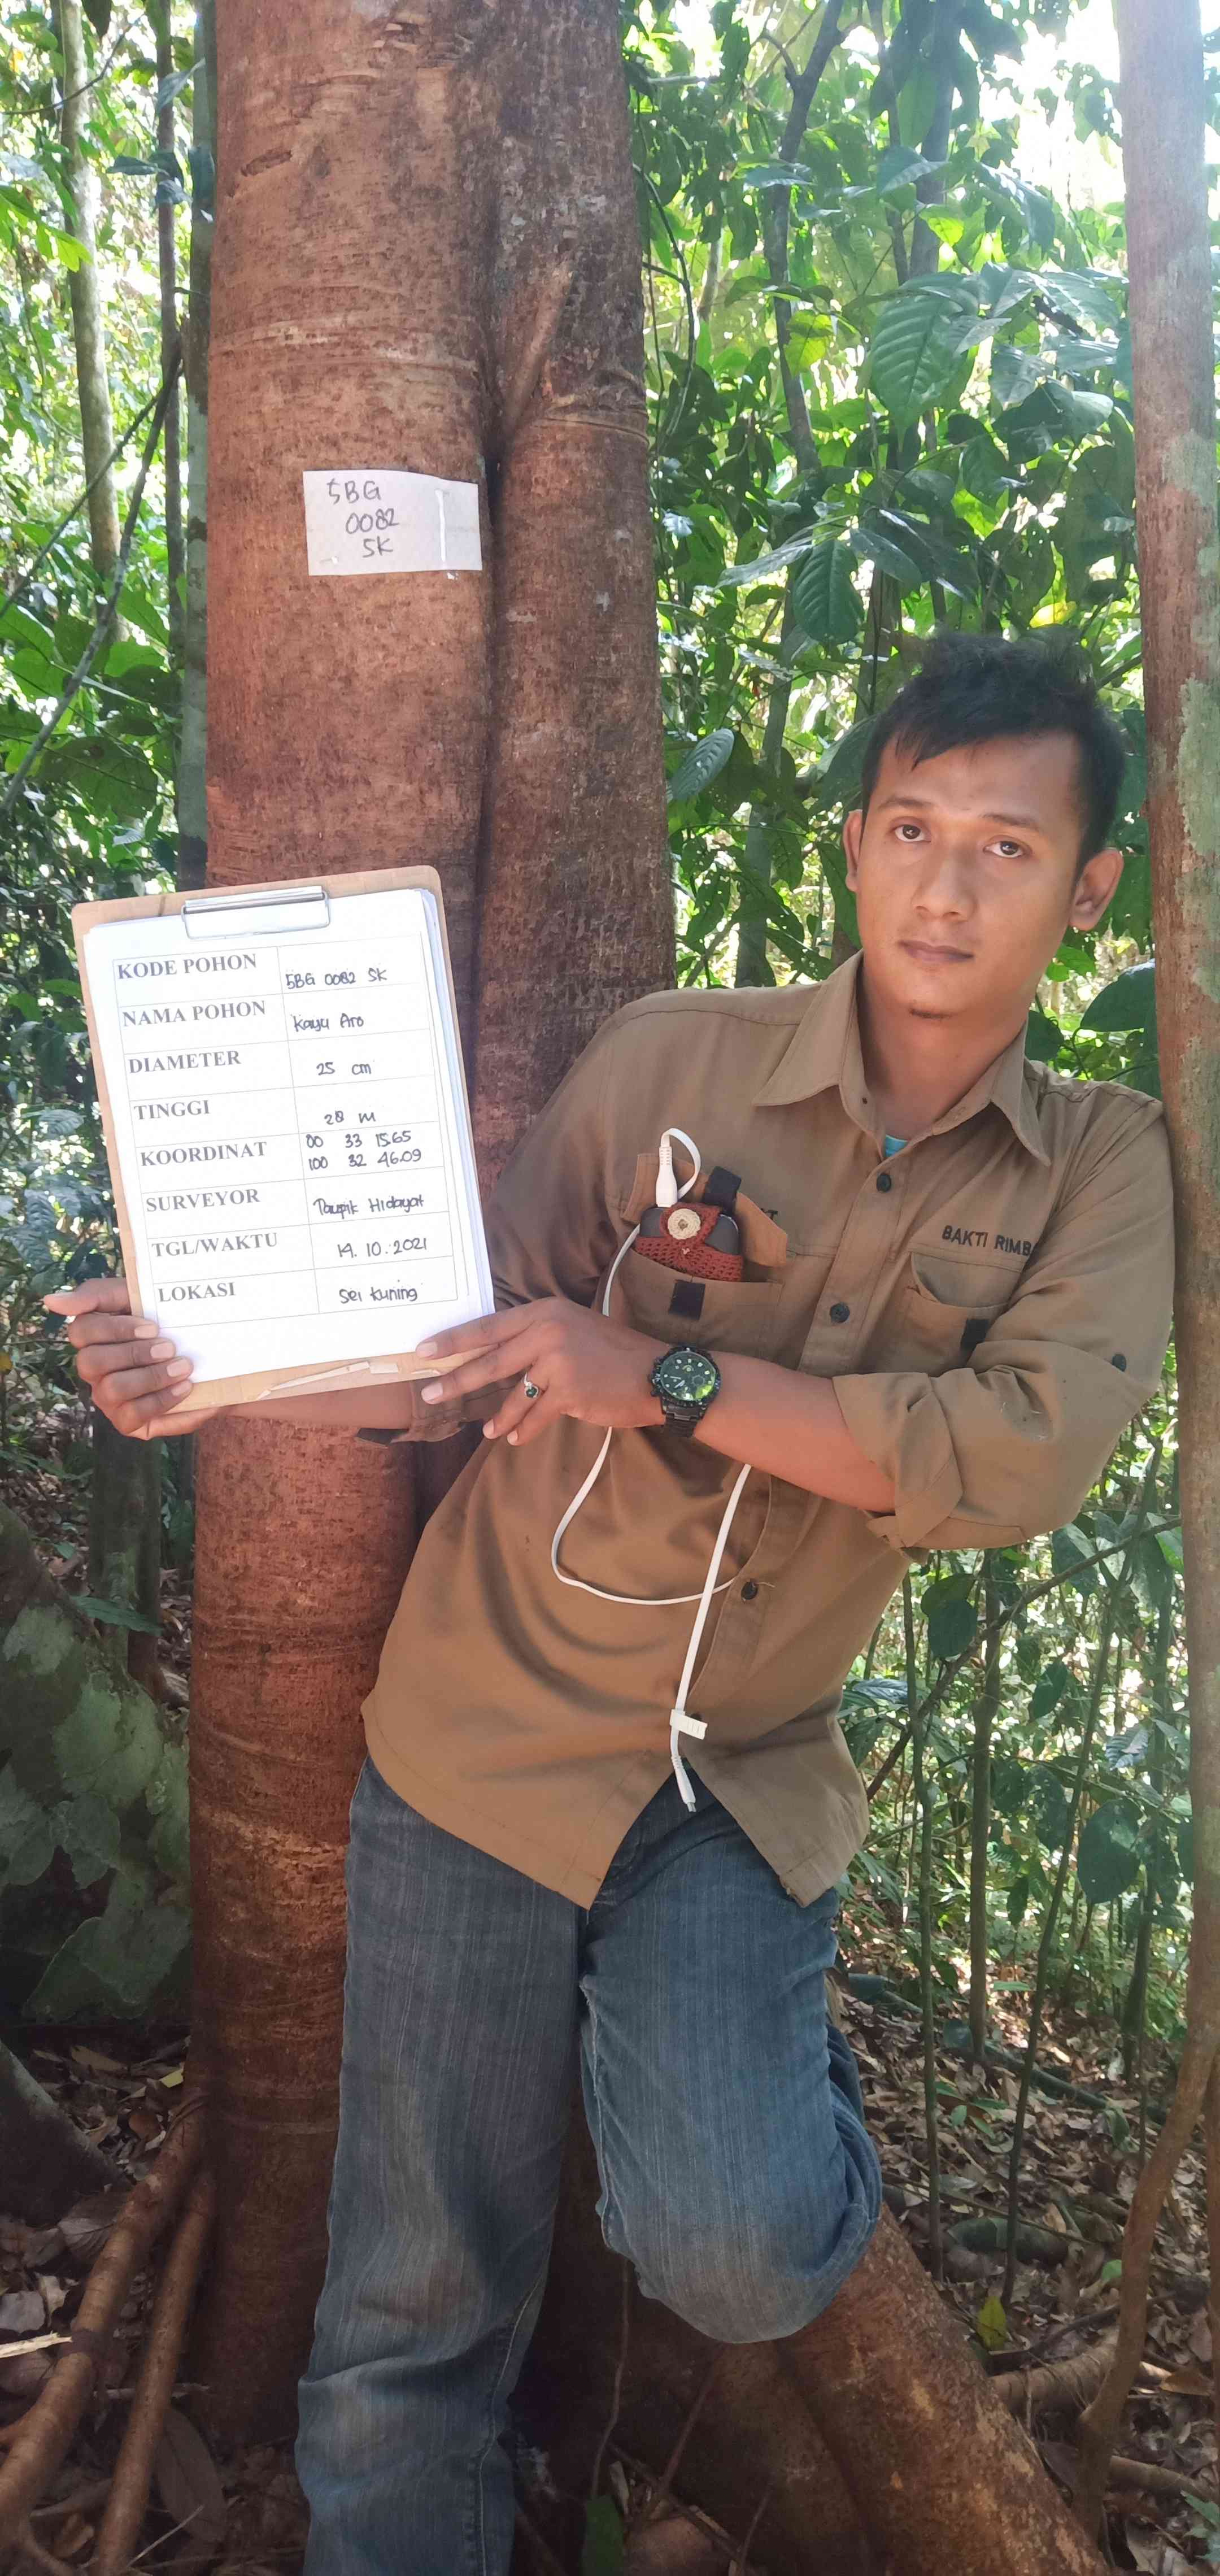 5BG
0082
SK
KODE POHON 5BG 0082 SK
NAMA POHON Kayu Aro
DIAMETER 25 cm
TINGGI 28 m
KOORDINAT 00 33 15.65
100 32 46.09
SURVEYOR Taupik Hidayat
TGL/WAKTU 14.10.2021
LOKASI Sei Kuning
BAKTI RIMB